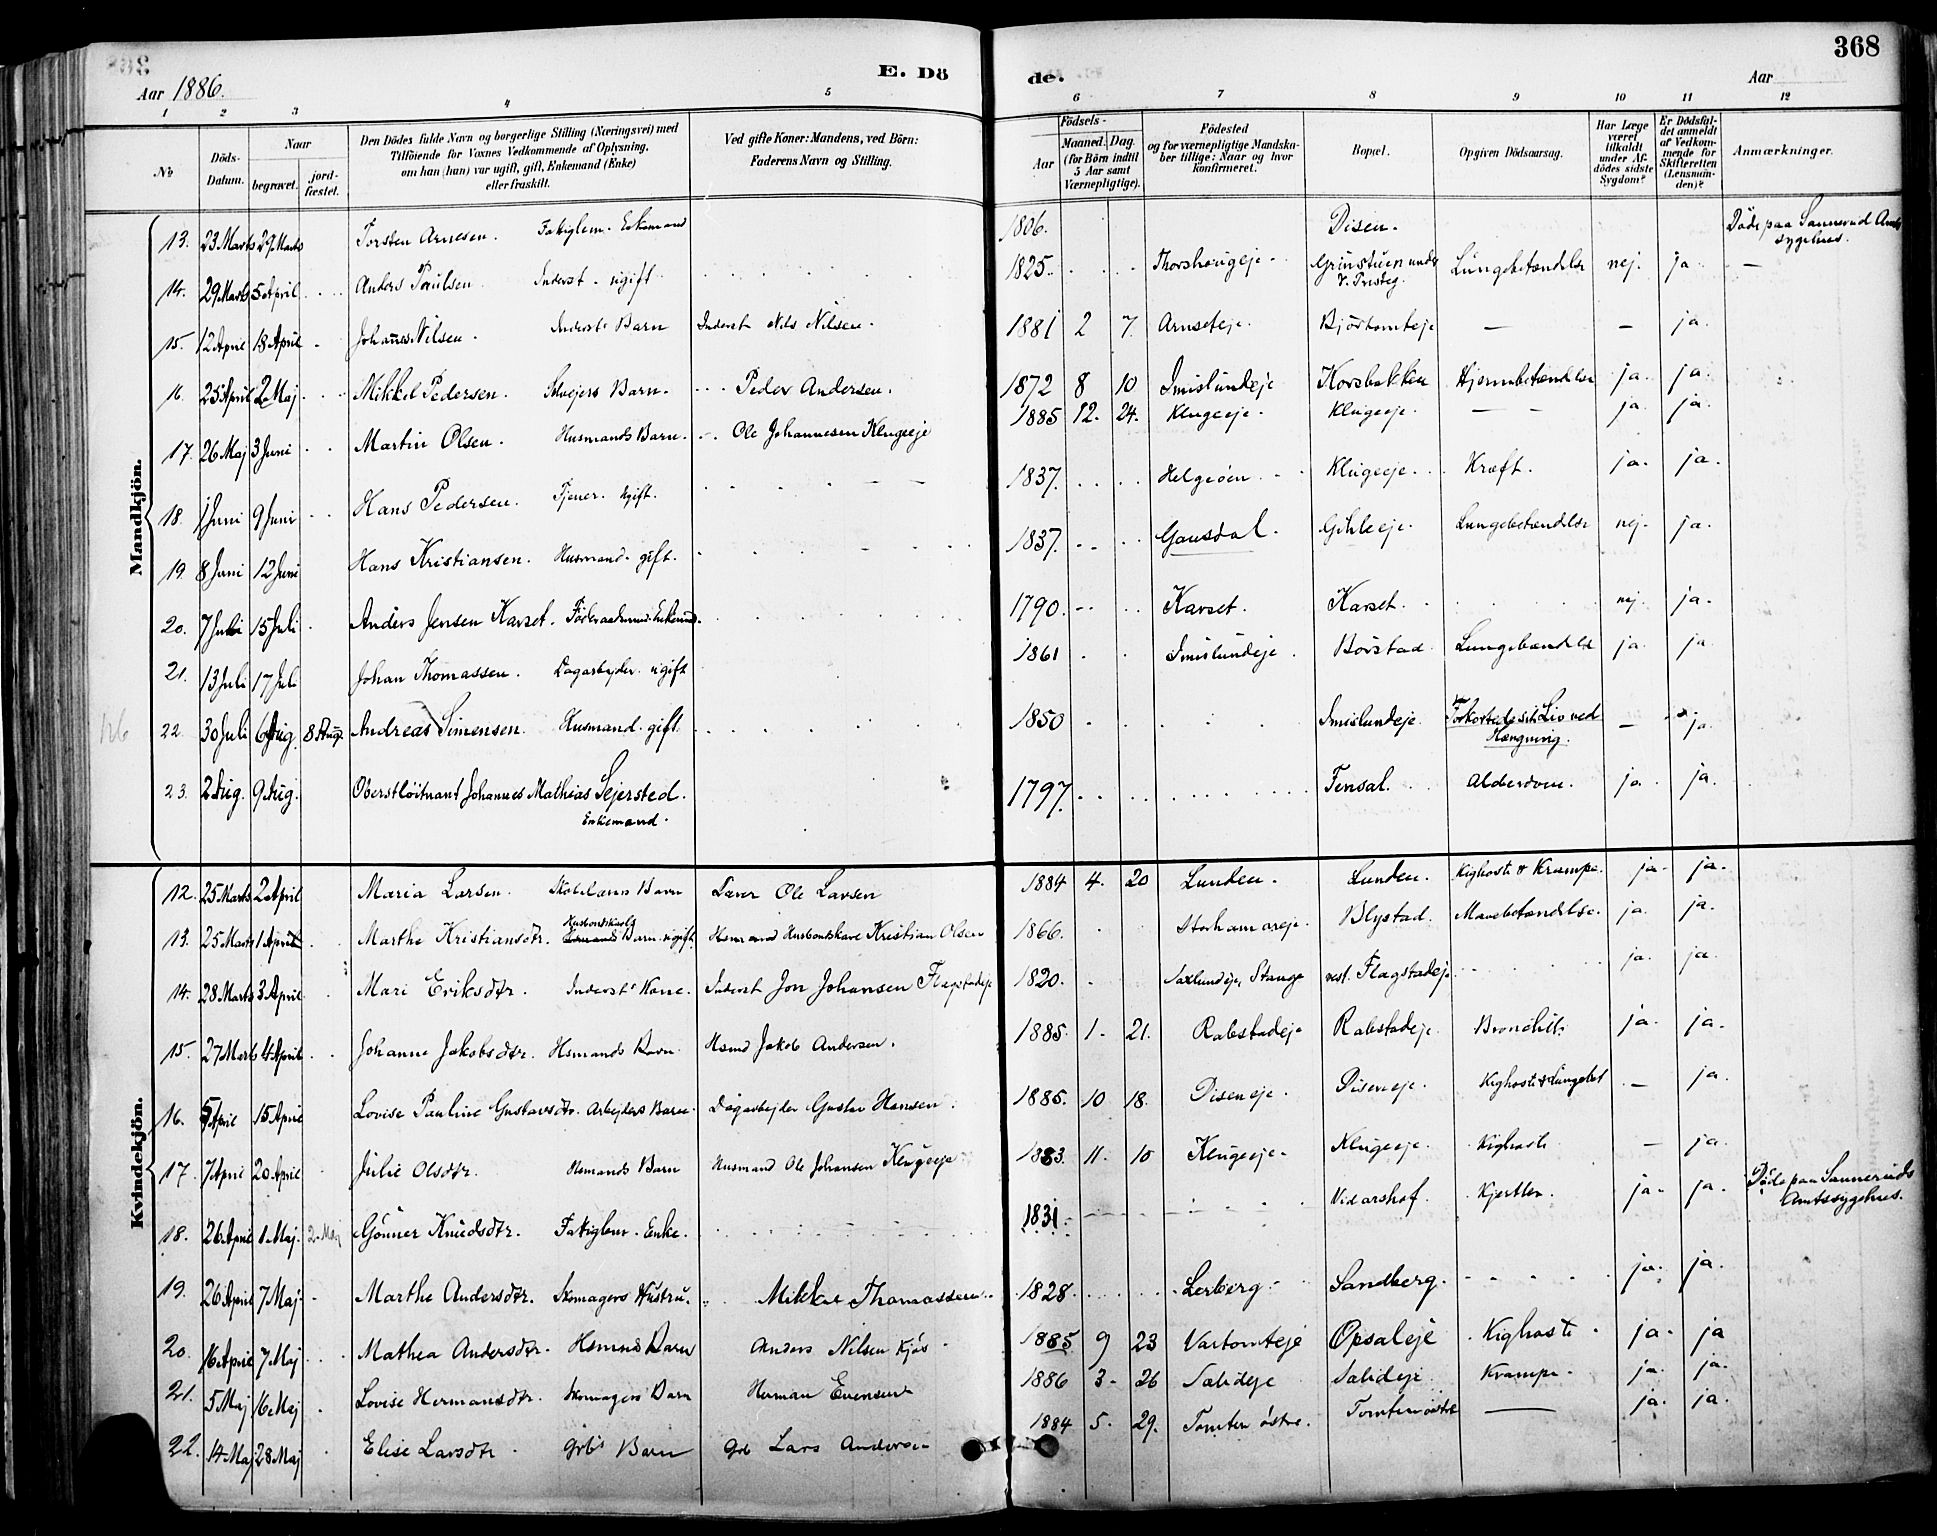 368
Aar 1886.
E. Dö
de.
Aar
1 2 3 4 5 6 7 8 9 10 11 12
No
Döds-Datum.
Naar
begravet.
jord-fæstet.
Den Dödes fulde Navn og borgerlige Stilling (Næringsvei) med
Tilföiende for Voxnes Vedkommende af Oplysning,
om han (hun) var ugift, gift, Enkemand (Enke)
eller fraskilt.
Ved gifte Koner: Mandens, ved Börn:
Faderens Navn og Stilling.
Födsels-
Aar
Maaned. Dag.
(for Börn indtil
5 Aar samt
Værnepligtige).
Födested
og for værnepligtige Mandska-
ber tillige: Naar og hvor
konfirmeret.
Bopæl.
Opgiven Dödsaarsag.
Har Læge
været
tilkaldt
under Af-
dödes sidste
Sygdom?
Er Dödsfal-
det anmeldt
af Vedkom-
mende for
Skifteretten
(Lensman-
den)?
Anmærkninger.
Mandkjön.
13. 23 Marts 29 Marts Torsten Arnesen. Fatiglem. Enkemand 1806. Disen. Döde paa Sannerud Amts sygehus.
14. 29 Marts 5 April Anders Paulsen Inderst. ugift 1825. Thorshougeje Grinstuen under V. Fristeg. Lungebetændelse nej. ja.
15. 12 April 18 April Johannes Nilsen. Inderst's Barn Inderst Nils Nilsen. 1881 2 7. Arnseteje. Bjørtomteje — — ja.
16. 25 April 2 Maj Mikkel Pedersen. Selvejers Barn. Peder Andersen. 1872 8 10 Imislundeje Korsbakken Hjernebetændelse ja. ja.
17. 26 Maj 3 Juni Martin Olsen. Husmands Barn. Ole Johannesen Klugeeje 1885 12. 24. Klugeeje. Klugeeje. — ja. ja.
18. 1 Juni 9 Juni Hans Pedersen. Tjener. ugift. 1837. Helgeöen Klugeeje. Kræft. ja. ja.
19. 8 Juni 12 Juni Hans Kristiansen. Husmand. gift. 1837. Gausdal. Gihleeje. Lungebetændelse nej. ja.
20. 7 Juli 15 Juli Anders Jensen Karset. Föderaadsmand. Enkemd. 1790. Karset. Karset. nej. ja.
21. 13 Juli 17 Juli Johan Thomassen. Dagarbejder. ugift 1861 Imislundeje. Börstad Lungebændelse ja. ja.
22. 30 Juli 6 Aug. 8 Aug. Andreas Simensen. Husmand. gift. 1850 Imislundeje. Forkortede sit Liv ved Hængning. — ja.
23. 2 Aug. 9 Aug. Oberstlöitnant Johannes Mathias Sejersted. Enkemand. 1797. Fensal. Alderdom. ja. ja.
Kvindekjön.
12. 25 Marts 2 April Maria Larsen. Barn Lærer Ole Larsen 1884 4. 20 Lunden. Lunden. Kighoste & Krampe. ja. ja.
13. 25 Marts 1 April Marthe Kristiansdtr. Barn. ugift. Kristian Olsen 1866. Storhamareje. Blystad. Mavebetændelse. ja. ja.
14. 28 Marts 3 April Mari Eriksdtr. Inderst's Kone. Inderst Jon Johansen Flagstadeje 1820. Stange vest. Flagstadeje ja. ja.
15. 27 Marts 4 April Johanne Jakobsdtr. Hsmands Barn. Hsmd Jakob Andersen. 1885. 1. 21. Rabstadeje Rabstadeje. Bronchit. ja. ja.
16. 5 April 15 April Lovise Pauline Gustavsdtr. Arbejders Barn. Dagarbejder Gustav Hansen. 1885. 10 18. Diseneje. Diseneje. Kighoste & Lungebet — ja.
17. 7 April 20 April Julie Olsdtr. Hsmands Barn Husmand Ole Johansen Klugeeje 1883. 11. 10 Klugeeje. Klugeeje. Kighoste — ja.
18. 26 April 1 Maj. 2 Maj Gönner Knudsdtr. Fatiglem. Enke. 1831. Vidarshof. Kjertler. ja. ja. Döde paa Sanneruds Amtssygehus.
19. 26 April 7 Maj. Marthe Andersdtr. Skomagers Hustru. Mikkel Thomassen. 1828. Lerberg. Sandberg. ja. ja.
20. 16 April 7 Maj Mathea Andersdtr. Hsmds Barn Anders Nilsen Kjös 1885 9 23 Vartomteje Opsaleje Kighoste ja. ja
21. 5 Maj 16 Maj Lovise Hermansdtr. Skomagers Barn Herman Evensen 1886 3. 26 Salideje Salideje. Krampe. ja. ja.
22. 14 Maj 28 Maj Elise Larsdtr Grb's Barn Grb Lars Andersen 1884 5. 29. Tomten östre. Tomten östre — ja. ja.